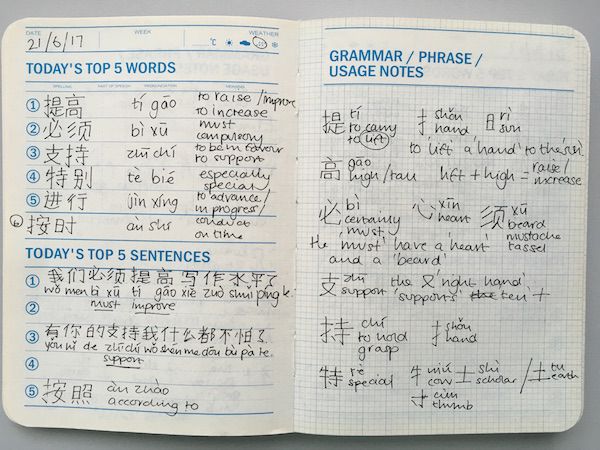 DATE WEEK WEATHER
21/6/17 °C
TODAY'S TOP 5 WORDS
SPELLING PART OF SPEECH PRONUNCIATION MEANING
① 提高 tí gāo to raise/improve
to increase
② 必须 bì xū must
compulsory
③ 支持 zhī chí to be in favour
to support
④ 特别 tè bié especially
special
⑤ 进行 jìn xíng to advance/
in progress/
conduct
⑥ 按时 àn shí on time
TODAY'S TOP 5 SENTENCES
① 我们必须提高写作水平了
wǒ men bì xū tí gāo xiě zuò shuǐ píng le
② must improve
③ 有你的支持我什么都不怕了
yǒu nǐ de zhī chí wǒ shén me dōu bù pà le
④ support
⑤ 按照 àn zhào
according to
GRAMMAR / PHRASE /
USAGE NOTES
提 tí to carry to lift 扌 shǒu hand 日 rì sun
to 'lift' a 'hand' to the sun
高 gao high/tall lift + high = raise/increase
必 bì certainly 'must' 心 xīn heart 须 xū beard
mustache
tassel
He 'must' have a 'heart'
and a 'beard'
支 zhī support the 又 'right hand'
'supports' the ten 十
持 chí to hold grasp 扌 shǒu hand
特 tè special 牜 niú cow 士 shì scholar / 土 tu earth
寸 cùn thumb